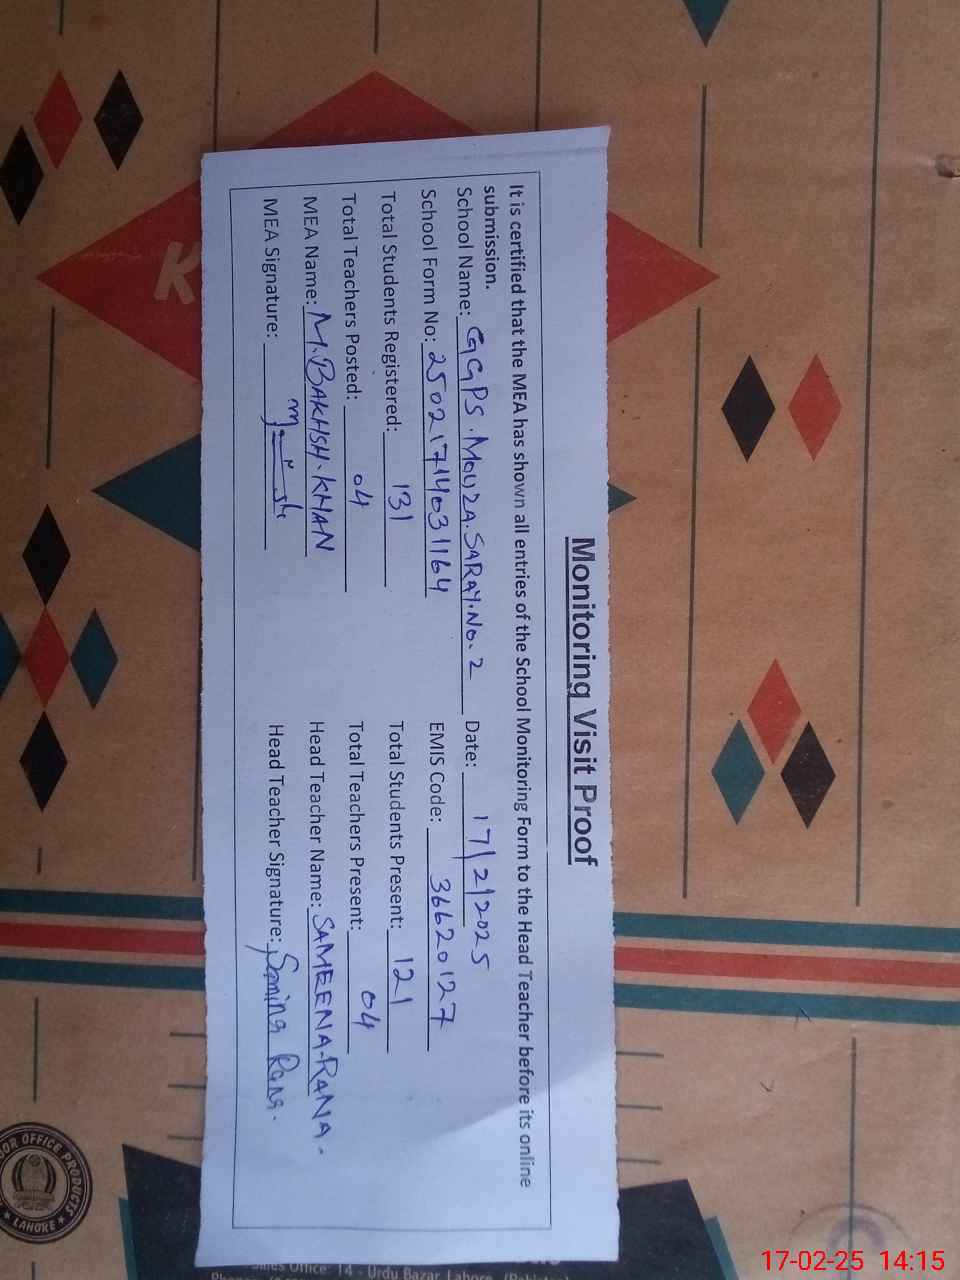 Monitoring Visit Proof
It is certified that the MEA has shown all entries of the School Monitoring Form to the Head Teacher before its online
submission.
School Name: GGPS. MOUZA. SARAY. NO. 2 Date: 17/2/2025
School Form No: 25021714031164 EMIS Code: 36620127
Total Students Registered: 131 Total Students Present: 121
Total Teachers Posted: 04 Total Teachers Present: 04
MEA Name: M. BAKHSH. KHAN Head Teacher Name: SAMEENA. RANA.
MEA Signature: Head Teacher Signature: Samina Rana.
K
OFFICE PRODUCTS
LAHORE
Office: 14 - Urdu Bazar Lahore
17-02-25 14:15